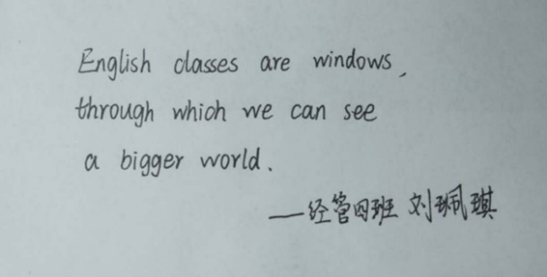 English classes are windows,
through which we can see
a bigger world.
——经管四班 刘珮琪